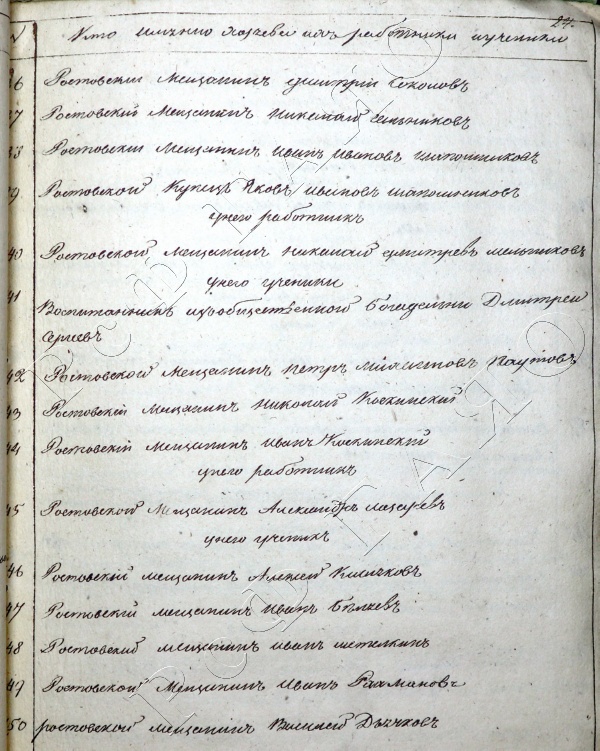 24.
Кто имянно хозяева ихъ работники и ученики
36 Ростовскiи Мещанинъ Дмитрiй Соколовъ
37 Ростовскiй Мещанинъ Николай
38 Ростовскiи Мещанинъ Иванъ Ивановъ Шапошниковъ
39 Ростовской Купецъ Яковъ Ивановъ Шапошниковъ
у него работникъ
40 Ростовской Мещанинъ Николай Дмитревъ Мельниковъ
у него ученики
41 Воспитанникъ изъ общественной Богадельни Дмитреи
Сергеевъ
42 Ростовской Мещанинъ Петръ Паутовъ
43 Ростовскiй Мещанинъ Николай Коскинскiй
44 Ростовскiй Мещанинъ Иванъ Коскинскiй
у него работникъ
45 Ростовской Мещанинъ Александръ Лазаревъ
у него ученикъ
46 Ростовскiй мещанинъ Алексей Клычковъ
47 Ростовскiй мещанинъ Иванъ Беляевъ
48 Ростовскiй мещанинъ Иванъ Метелкинъ
49 Ростовской Мещанинъ Иванъ Рахмановъ
50 ростовской мещанинъ Василей Дьячковъ